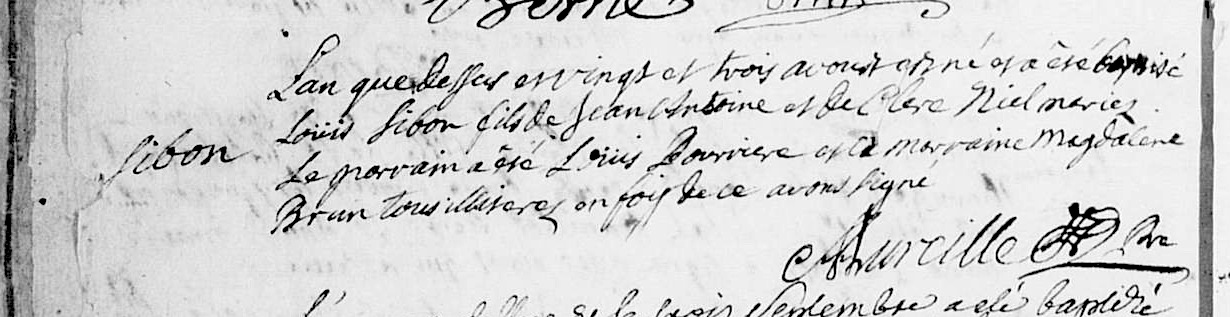 Berne
L'an que dessus et vingt et trois avoust est né et a été baptisé
Louis Sibon fils de Jean Antoine et de Clere Niel mariez.
Sibon
Le parrain a été Louis Bourriere et la marraine Magdalene
Brun tous illiterez en foy de ce avons signé
Mureille Pre
septembre a été baptisé